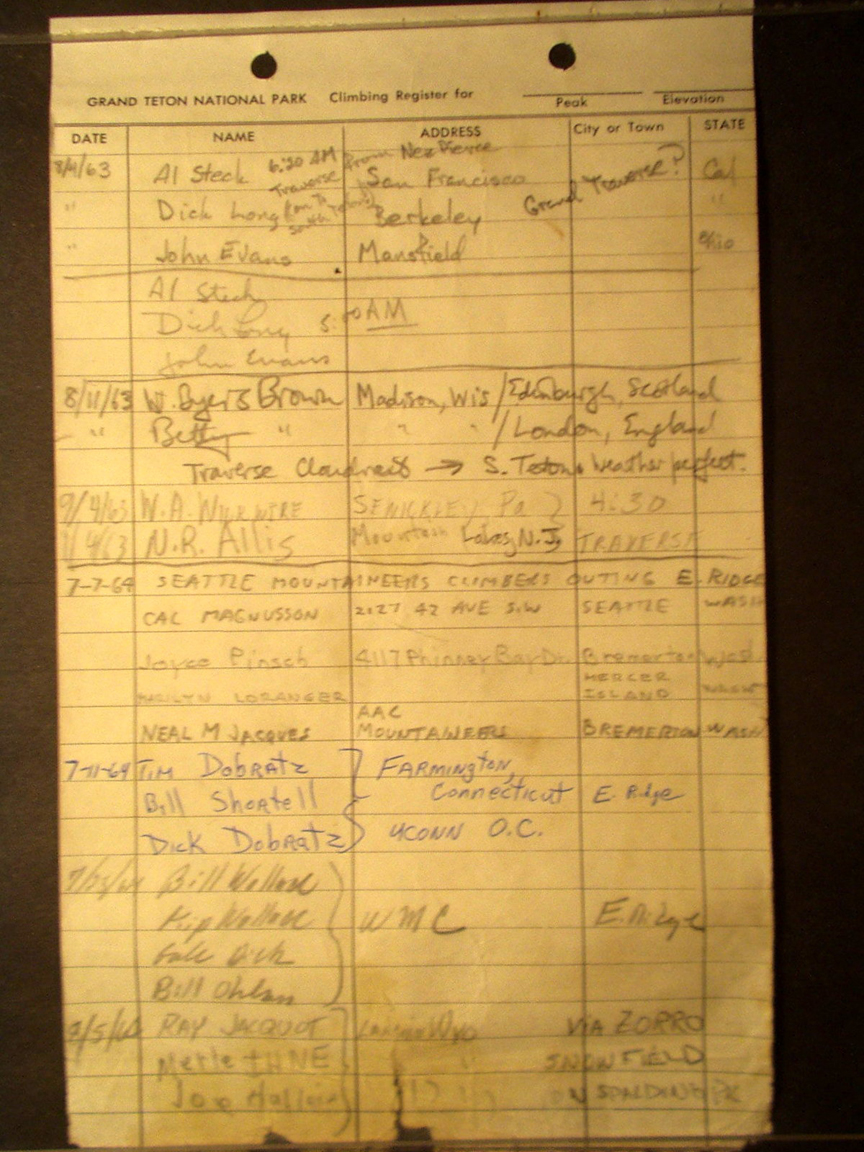 GRAND TETON NATIONAL PARK Climbing Register for
Peak Elevation
DATE NAME ADDRESS City or Town STATE
8/4/63 Al Steck 6:30 AM Traverse from Nez Pierce San Francisco Grand Traverse? Cal
" Dick Long South Berkeley "
" John Evans Mansfield Ohio
Al Steck
Dick Long 5:00 AM
John Evans
8/11/63 W. Byers Brown Madison, Wis / Edinburgh, Scotland
" Betty " " " / London, England
Traverse Cloudveil → S. Teton. Weather perfect.
9/4/63 W.A. Pa } 4:30
9/4/63 N.R. Allis Mountain Lakes, N.J. TRAVERSE
7-7-64 SEATTLE MOUNTAINEERS CLIMBERS OUTING E. RIDGE
CAL MAGNUSSON 2127 42 AVE S.W SEATTLE WASH
Joyce Pinsch 4117 Phinney Bay Dr. Bremerton Wash
MARILYN LORANGER MERCER ISLAND WASH
NEAL M JACQUES AAC MOUNTAINEERS BREMERTON WASH
7-11-64 TIM DOBRATZ } FARMINGTON,
Bill Shortell Connecticut E. Ridge
DICK DOBRATZ } UCONN O.C.
Bill Wallace
Kip Wallace WMC E. Ridge
Gale Dick
Bill Ohlson
RAY JACQUOT Laramie Wyo VIA ZORRO
Merle IHNE " SNOWFIELD
Joe " " ON SPALDING PK